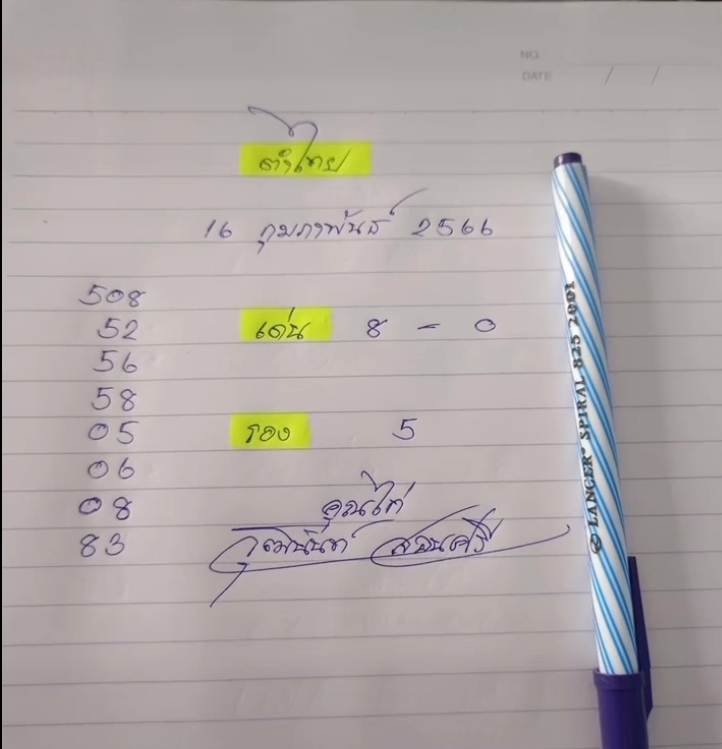 NO.
DATE / /
ตำไทย
16 กุมภาพันธ์ 2566
508
52 เด่น 8 - 0
56
58
05 รอง 5
06
08 คุณไก่
83
LANCER® SPIRAL 825 2001